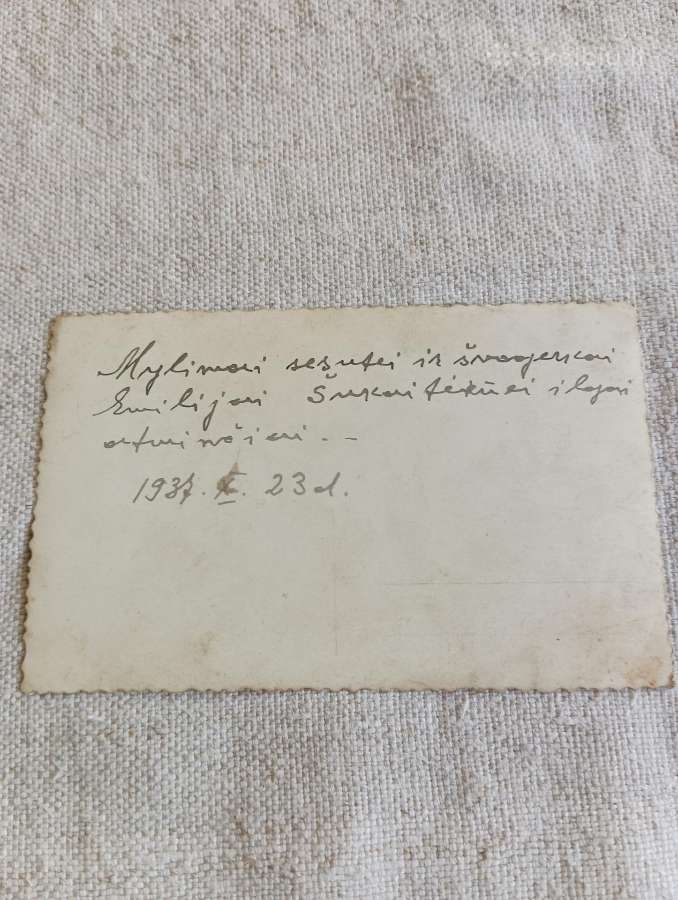 Mylimai sesutei ir švogerkai
Emilijai Šukaitėkūei ilgai
atminčiai. --
1937. X. 23 d.